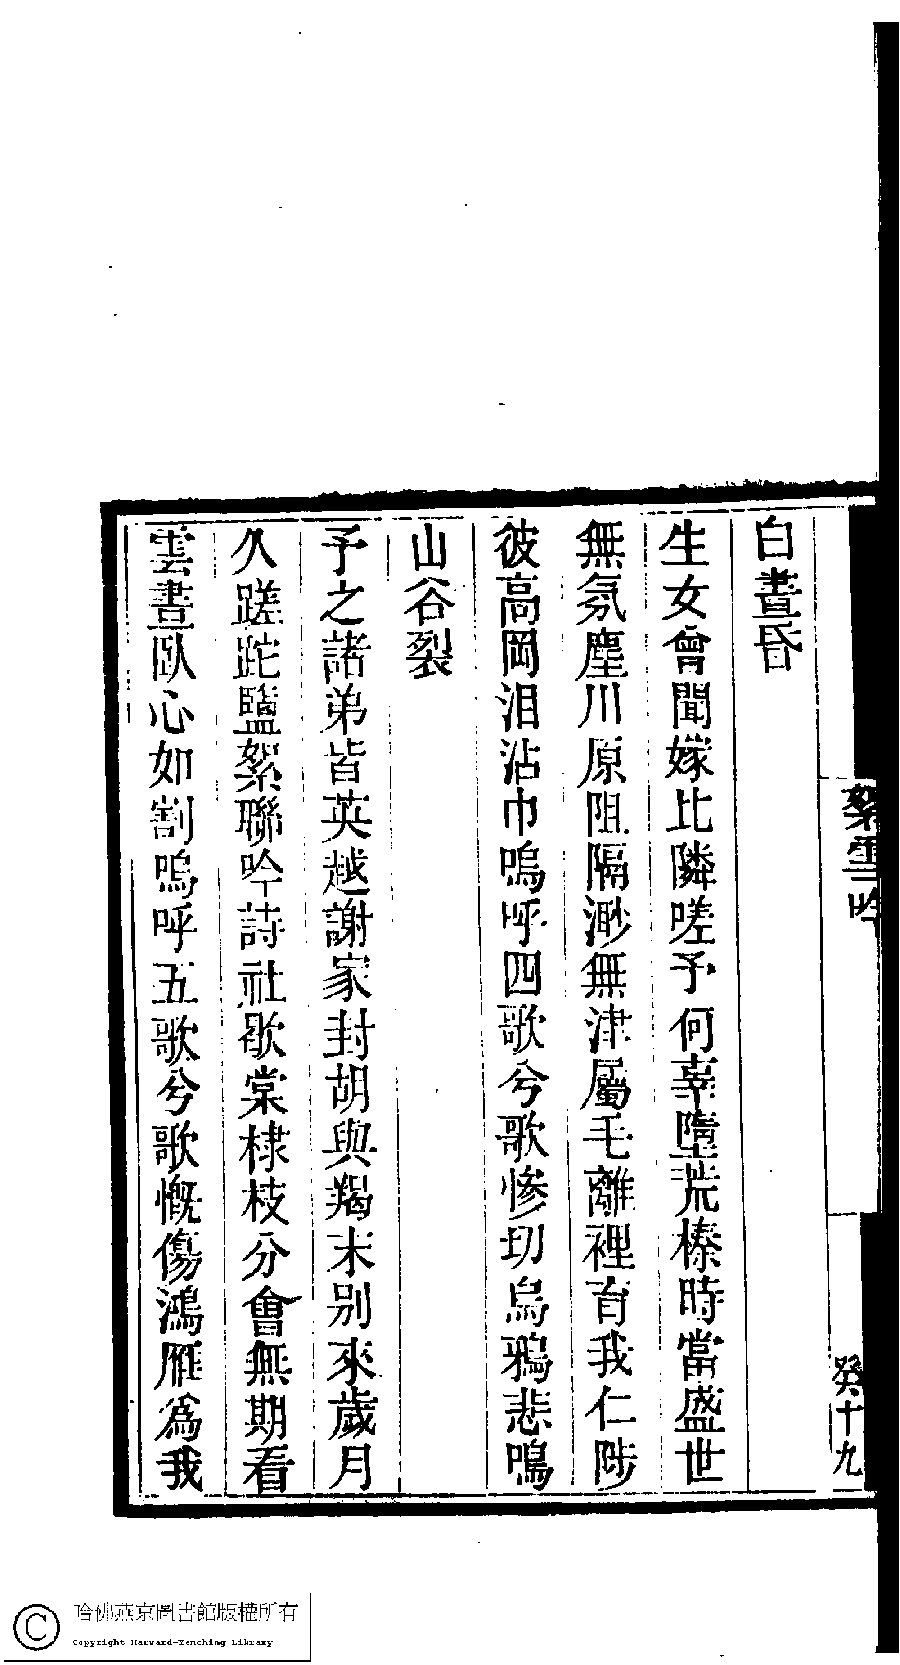 白晝昏
生女曾聞嫁比隣嗟予何辜墮荒榛時當盛世
無氛塵川原阻隔渺無津屬毛離裡育我仁陟
彼高岡泪沾巾嗚呼四歌兮歌慘切烏鴉悲鳴
山谷裂
予之諸弟皆英越謝家封胡與羯末別來歲月
久蹉跎鹽絮聯吟詩社歇棠棣枝分會無期看
雲晝臥心如割嗚呼五歌兮歌慨傷鴻雁為我
絮雪吟
癸十九
哈佛燕京圖書館版權所有
Copyright Harvard-Yenching Library